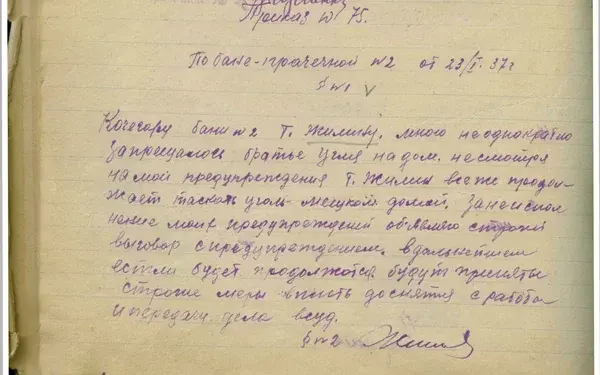 Приказ № 75.
По бане-прачечной №2 от 23/X. 37г
§ №1 V
Кочегару бани №2 Т. Жилину, мною неоднократно
запрещалось братье угля на дом, несмотря
на мои предупреждения Т. Жилин всеже продол-
жает таскать уголь домой, за неиспол
нение моих предупреждений объявляю строгий
выговор с предупреждением. вдальнейшем
если будет продолжатся будут приняты
строгие меры вплоть до снятия с работы
и передачи дела всуд.
§ №2